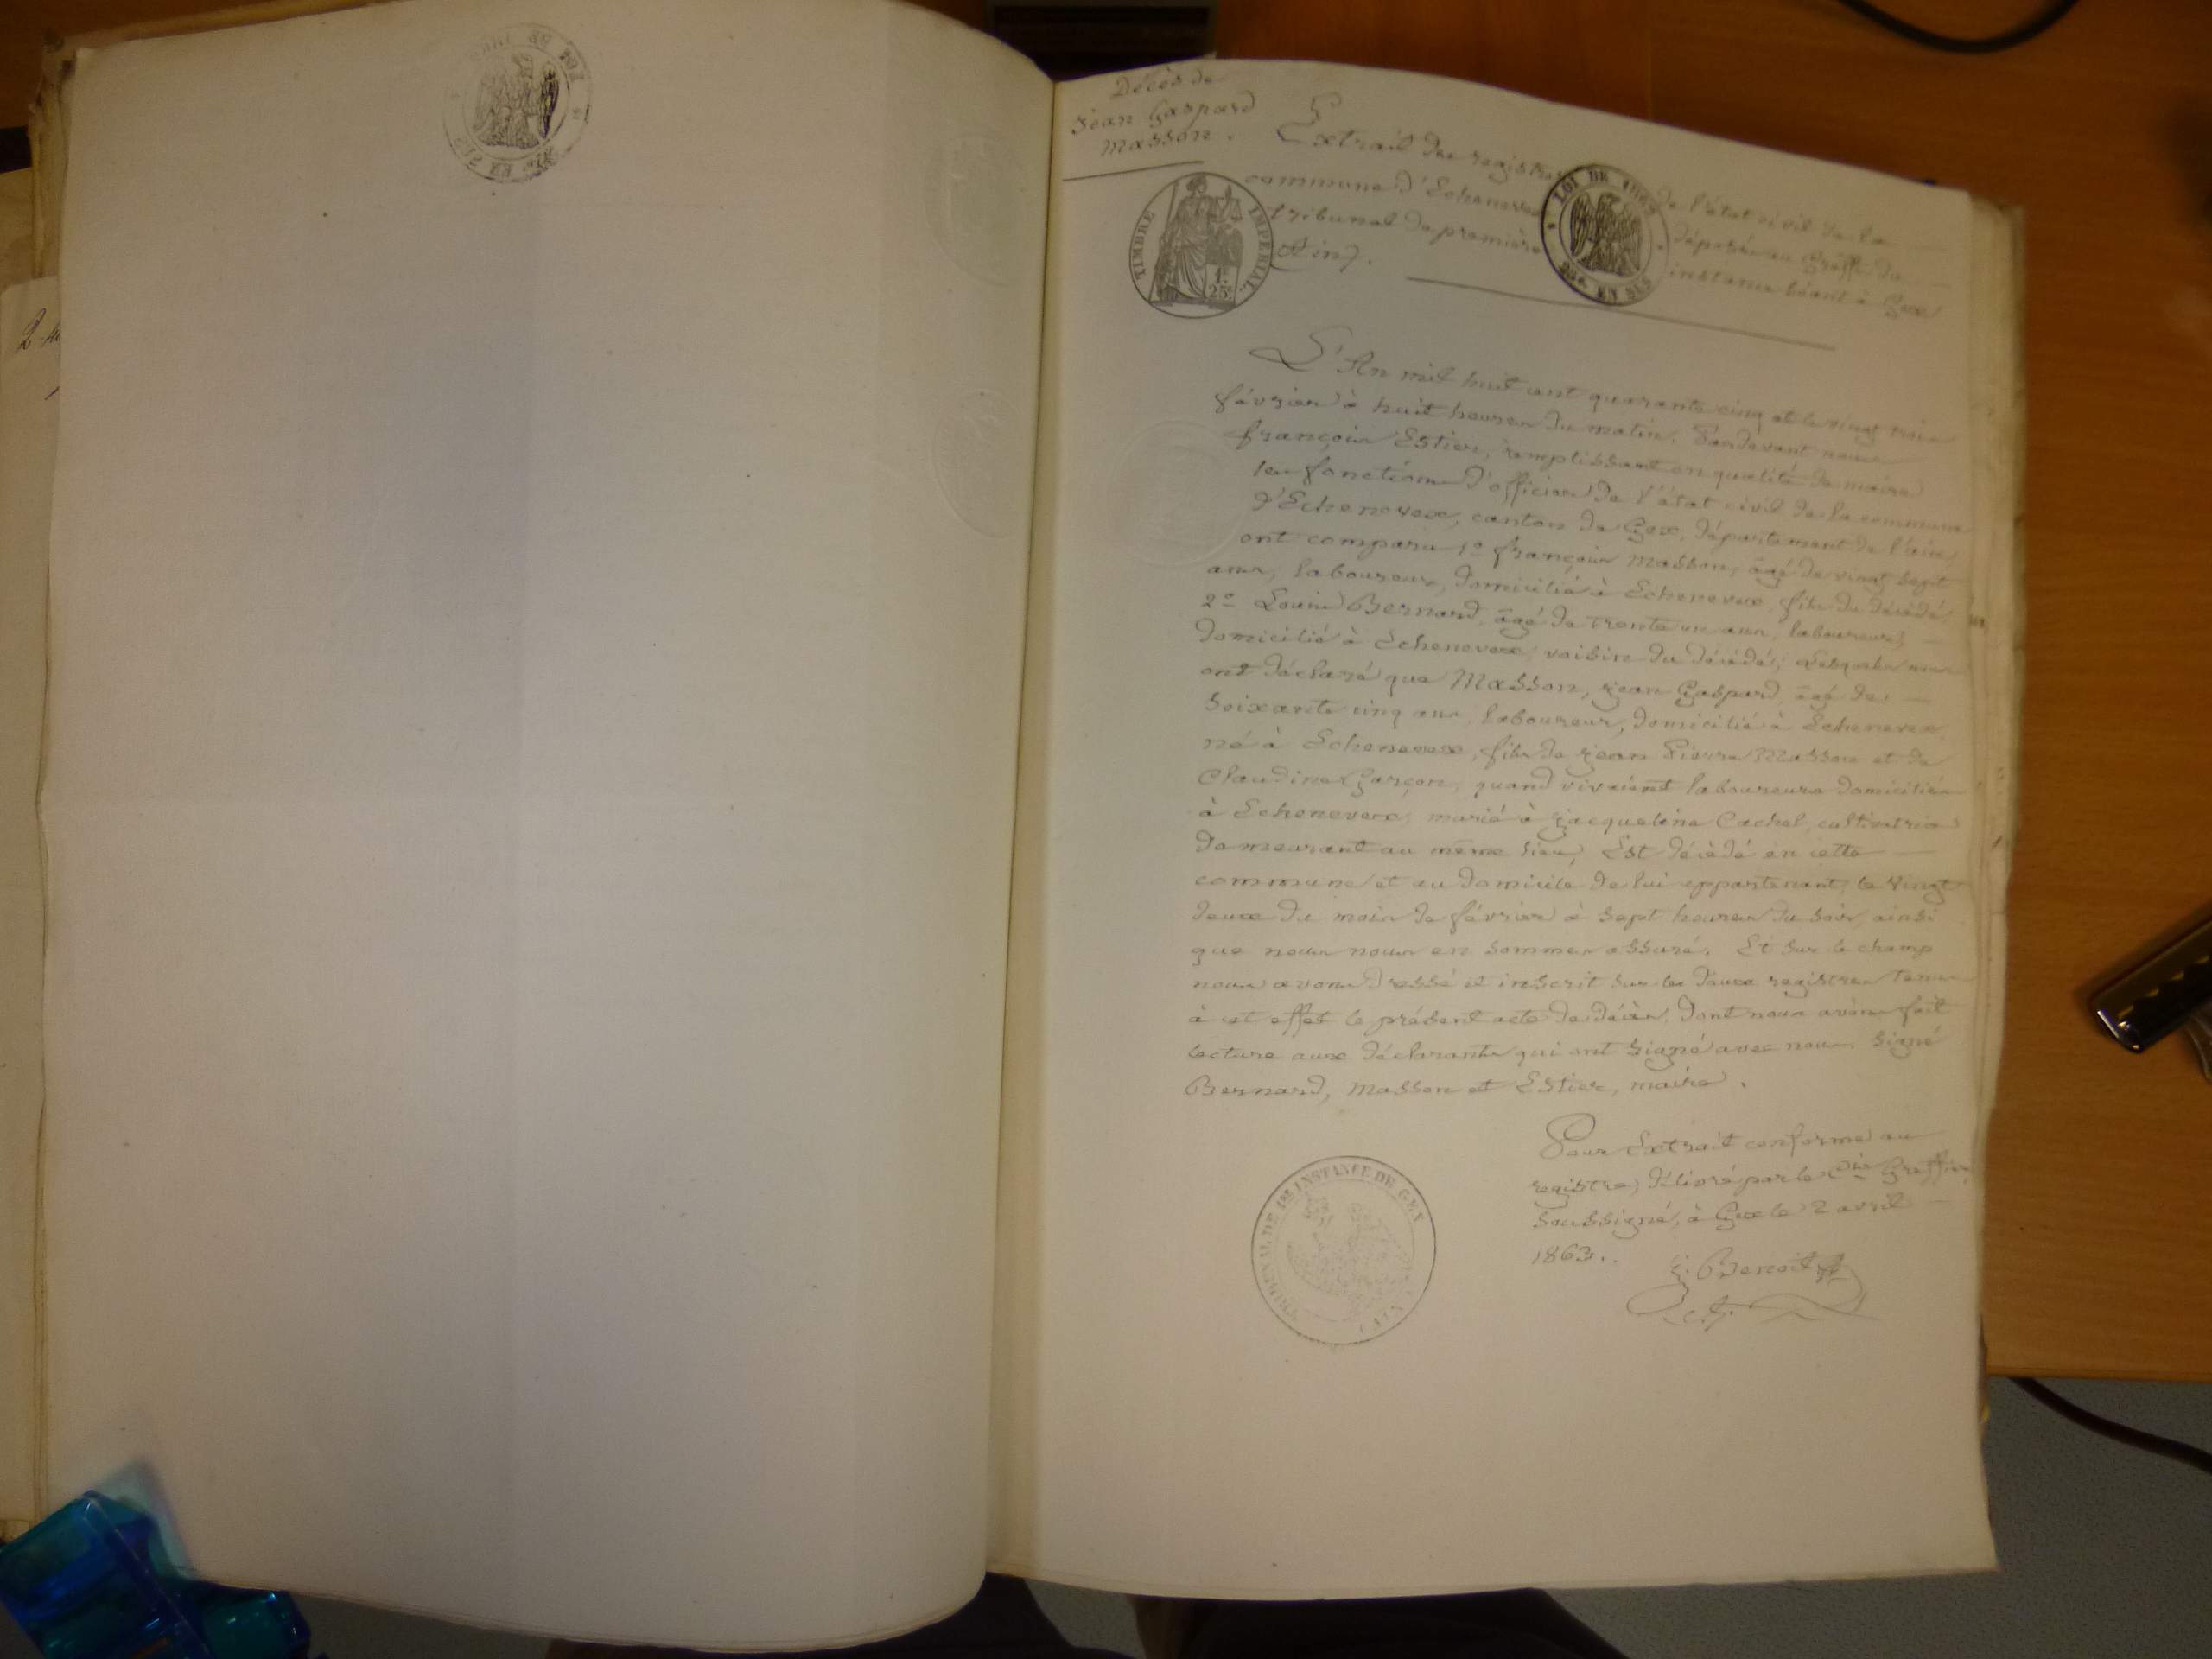 Décès de
Jean Gaspard
Masson.
Extrait des registres de l'état civil de la
commune d'Echenevex déposés au Greffe du
tribunal de première instance séant à Gex
(Ain).
TIMBRE IMPERIAL
1F
25c
LOI DE 1862
EN SUS
L'An mil huit cent quarante cinq et le vingt trois
février à huit heures du matin. Pardevant nous
françois Estier, remplissant en qualité de maire
les fonctions d'officier de l'état civil de la commune
d'Echenevex, canton de Gex, département de l'ain,
ont comparu 1º françois Masson, âgé de vingt sept
ans, laboureur, domicilié à Echenevex, fils du décédé,
2º Louis Bernard, âgé de trente un ans, laboureur,
domicilié à Echenevex, voisin du décédé; Lesquels nous
ont déclaré que Masson, Jean Gaspard, âgé de
soixante cinq ans, laboureur, domicilié à Echenevex,
né à Echenevex, fils de Jean Pierre Masson et de
Claudine Garçon, quand vivaient laboureurs domiciliés
à Echenevex, marié à Jacqueline Cachat, cultivatrice
demeurant au même lieu, Est décédé en cette
commune et au domicile de lui appartenant, le vingt
deux du mois de février à sept heures du soir, ainsi
que nous nous en sommes assuré. Et sur le champ
nous avons dressé et inscrit sur les deux registres tenus
à cet effet le présent acte de décès, dont nous avons fait
lecture aux déclarants qui ont signé avec nous. Signé
Bernard, Masson et Estier, maire.
Pour Extrait conforme au
registre, délivré par le Cis Greffier
soussigné, à Gex le 2 avril
1863.
J. Benoit
TRIBUNAL DE 1ERE INSTANCE DE GEX
(AIN)